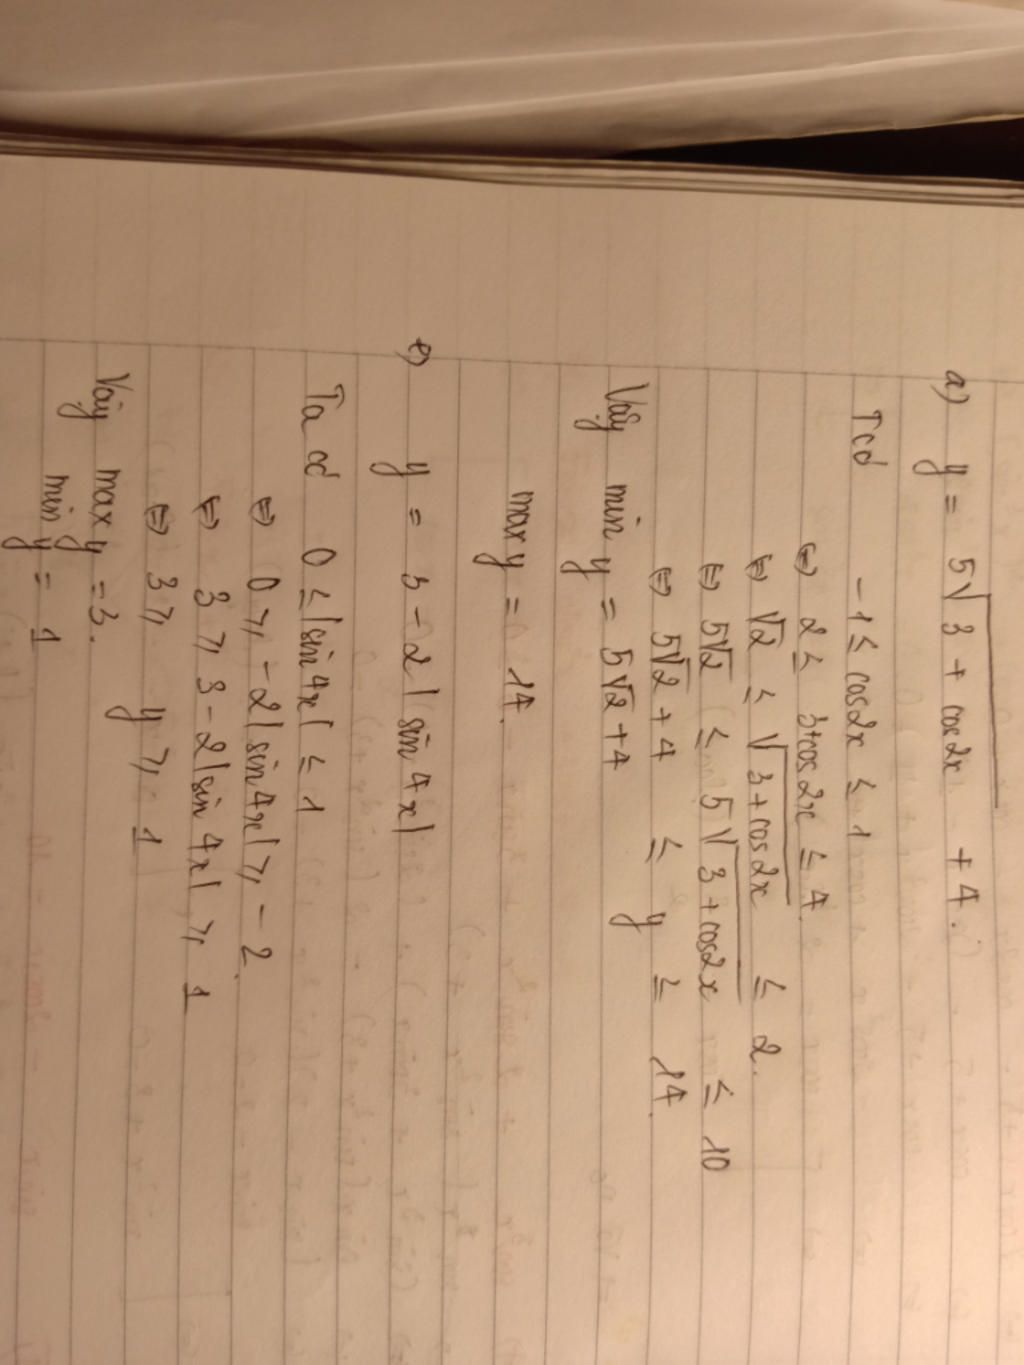 a) y = 5√(3 + cos2x) + 4.
Tcó -1 ≤ cos2x ≤ 1
⇔ 2 ≤ 3+cos2x ≤ 4.
⇔ √2 ≤ √(3+cos2x) ≤ 2.
⇔ 5√2 ≤ 5√(3+cos2x) ≤ 10
⇔ 5√2+4 ≤ y ≤ 14.
Vậy min y = 5√2+4
max y = 14.
e) y = 3 - 2|sin4x|
Ta có 0 ≤ |sin4x| ≤ 1
⇔ 0 ≥ -2|sin4x| ≥ -2.
⇔ 3 ≥ 3-2|sin4x| ≥ 1
⇔ 3 ≥ y ≥ 1
Vậy max y = 3.
min y = 1